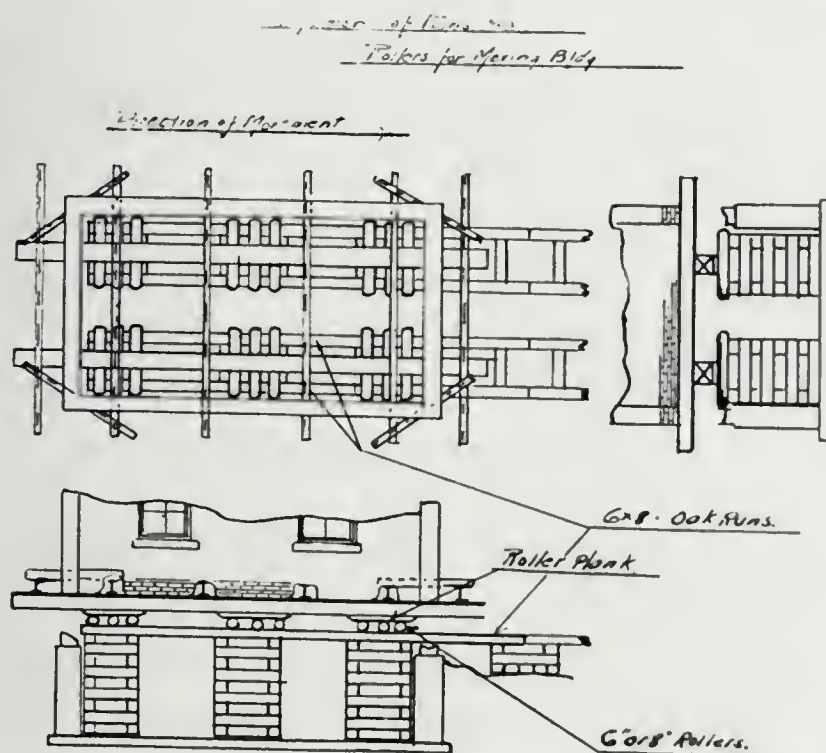 of
Rollers for Moving Bldg
Direction of Movement
6x8 - Oak Runs.
Roller Plank
6" or 8" Rollers.